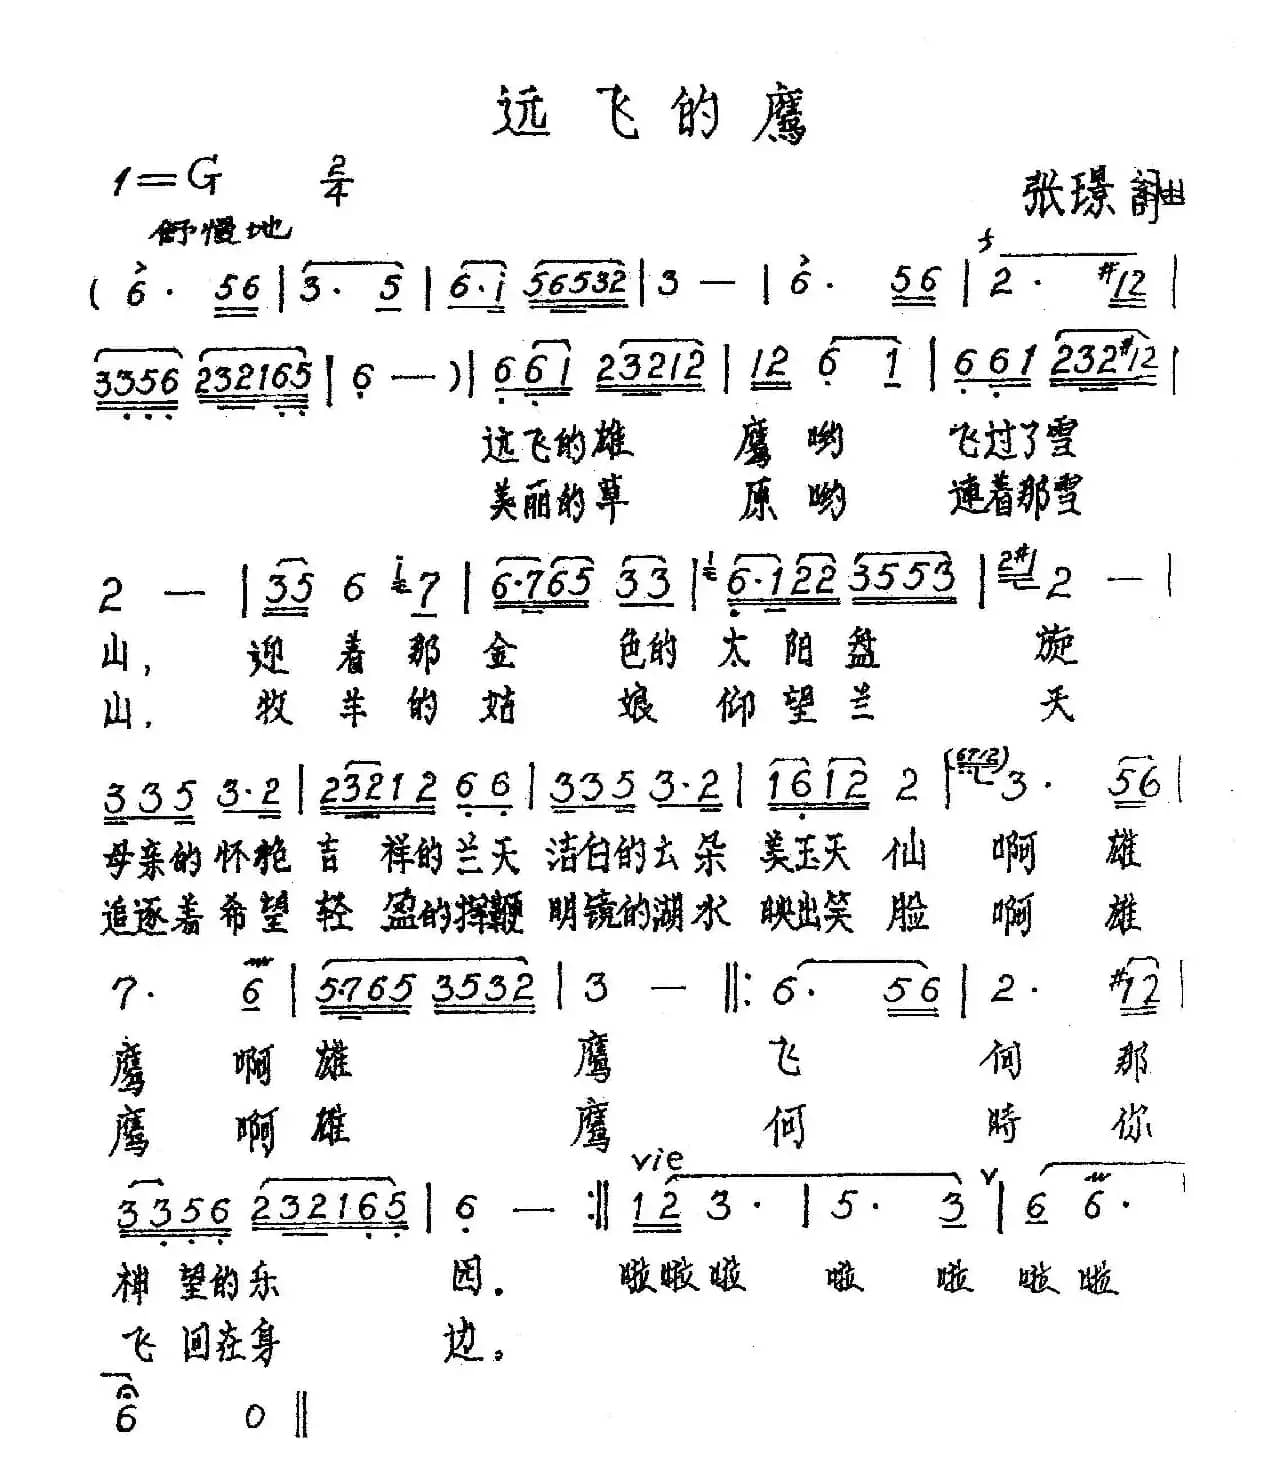 远飞的鹰
1=G 2/4
张璟 詞曲
舒慢地
( 6· 56 | 3· 5 | 6·i 56532 | 3 — | 6· 56 | 2· #12 |
3356 232165 | 6 — ) | 661 23212 | 12 6 1 | 661 232#12 |
远飞的雄 鹰哟 飞过了雪
美丽的草 原哟 連着那雪
2 — | 35 6 i 7 | 6·765 33 | 1 6·122 3553 | 2#1 2 — |
山, 迎着那金 色的太阳盘 旋
山. 牧羊的姑 娘仰望兰 天
335 3·2 | 23212 66 | 335 3·2 | 1612 2 | (6712) 3· 56 |
母亲的怀抱 吉祥的兰天 洁白的云朵 美玉天仙 啊 雄
追逐着希望 轻盈的挥鞭 明镜的湖水 映出笑脸 啊 雄
7· 6 | 5·765 3532 | 3 — ||: 6· 56 | 2· #12 |
鹰 啊雄 鹰 飞 向 那
鹰 啊雄 鹰 何 時 你
vie
3356 232165 | 6 — :|| 12 3· | 5· 3 V | 6 6· |
神望的乐 园. 啦啦啦 啦 啦 啦啦
飞回在身 边。
6 0 ||